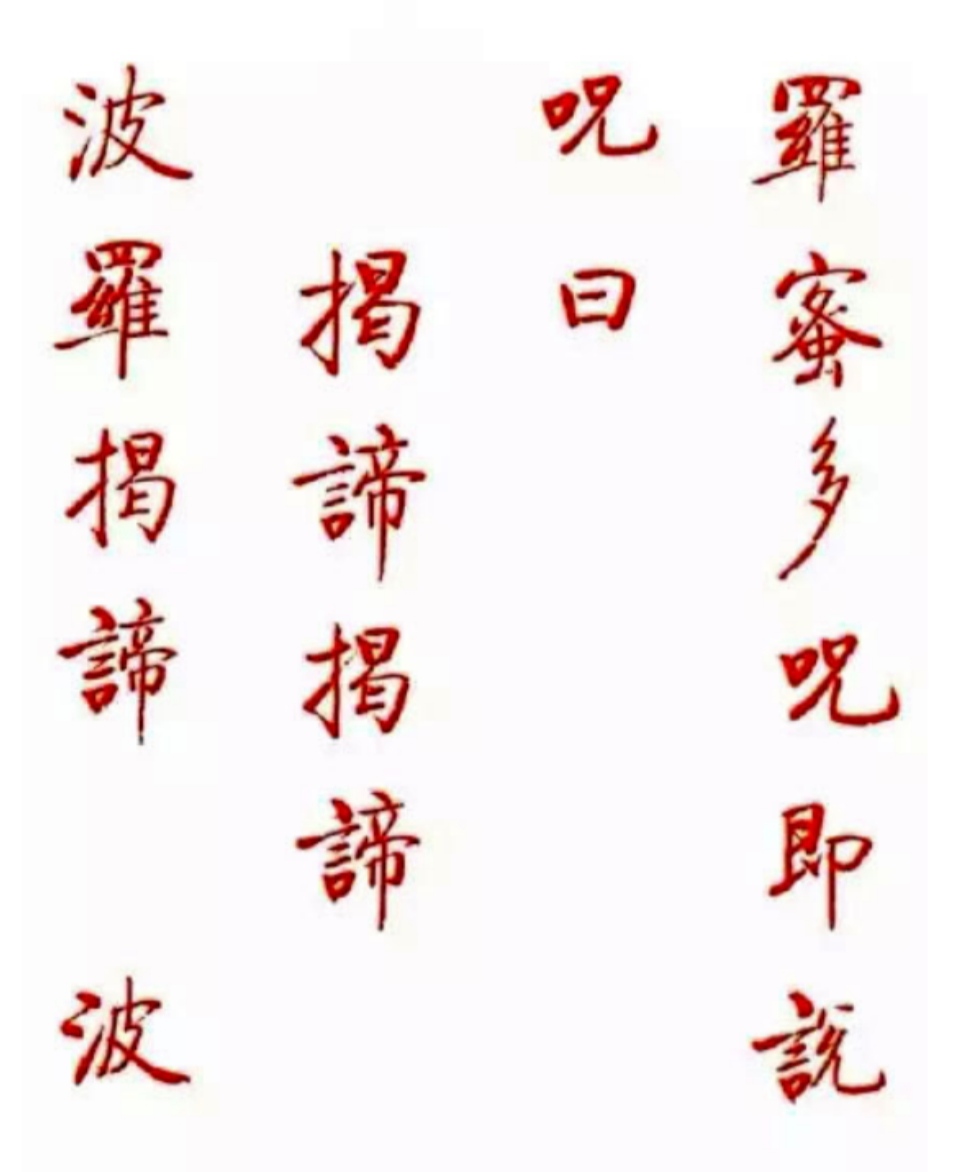 羅蜜多呪即說
呪曰
揭諦揭諦
波羅揭諦 波